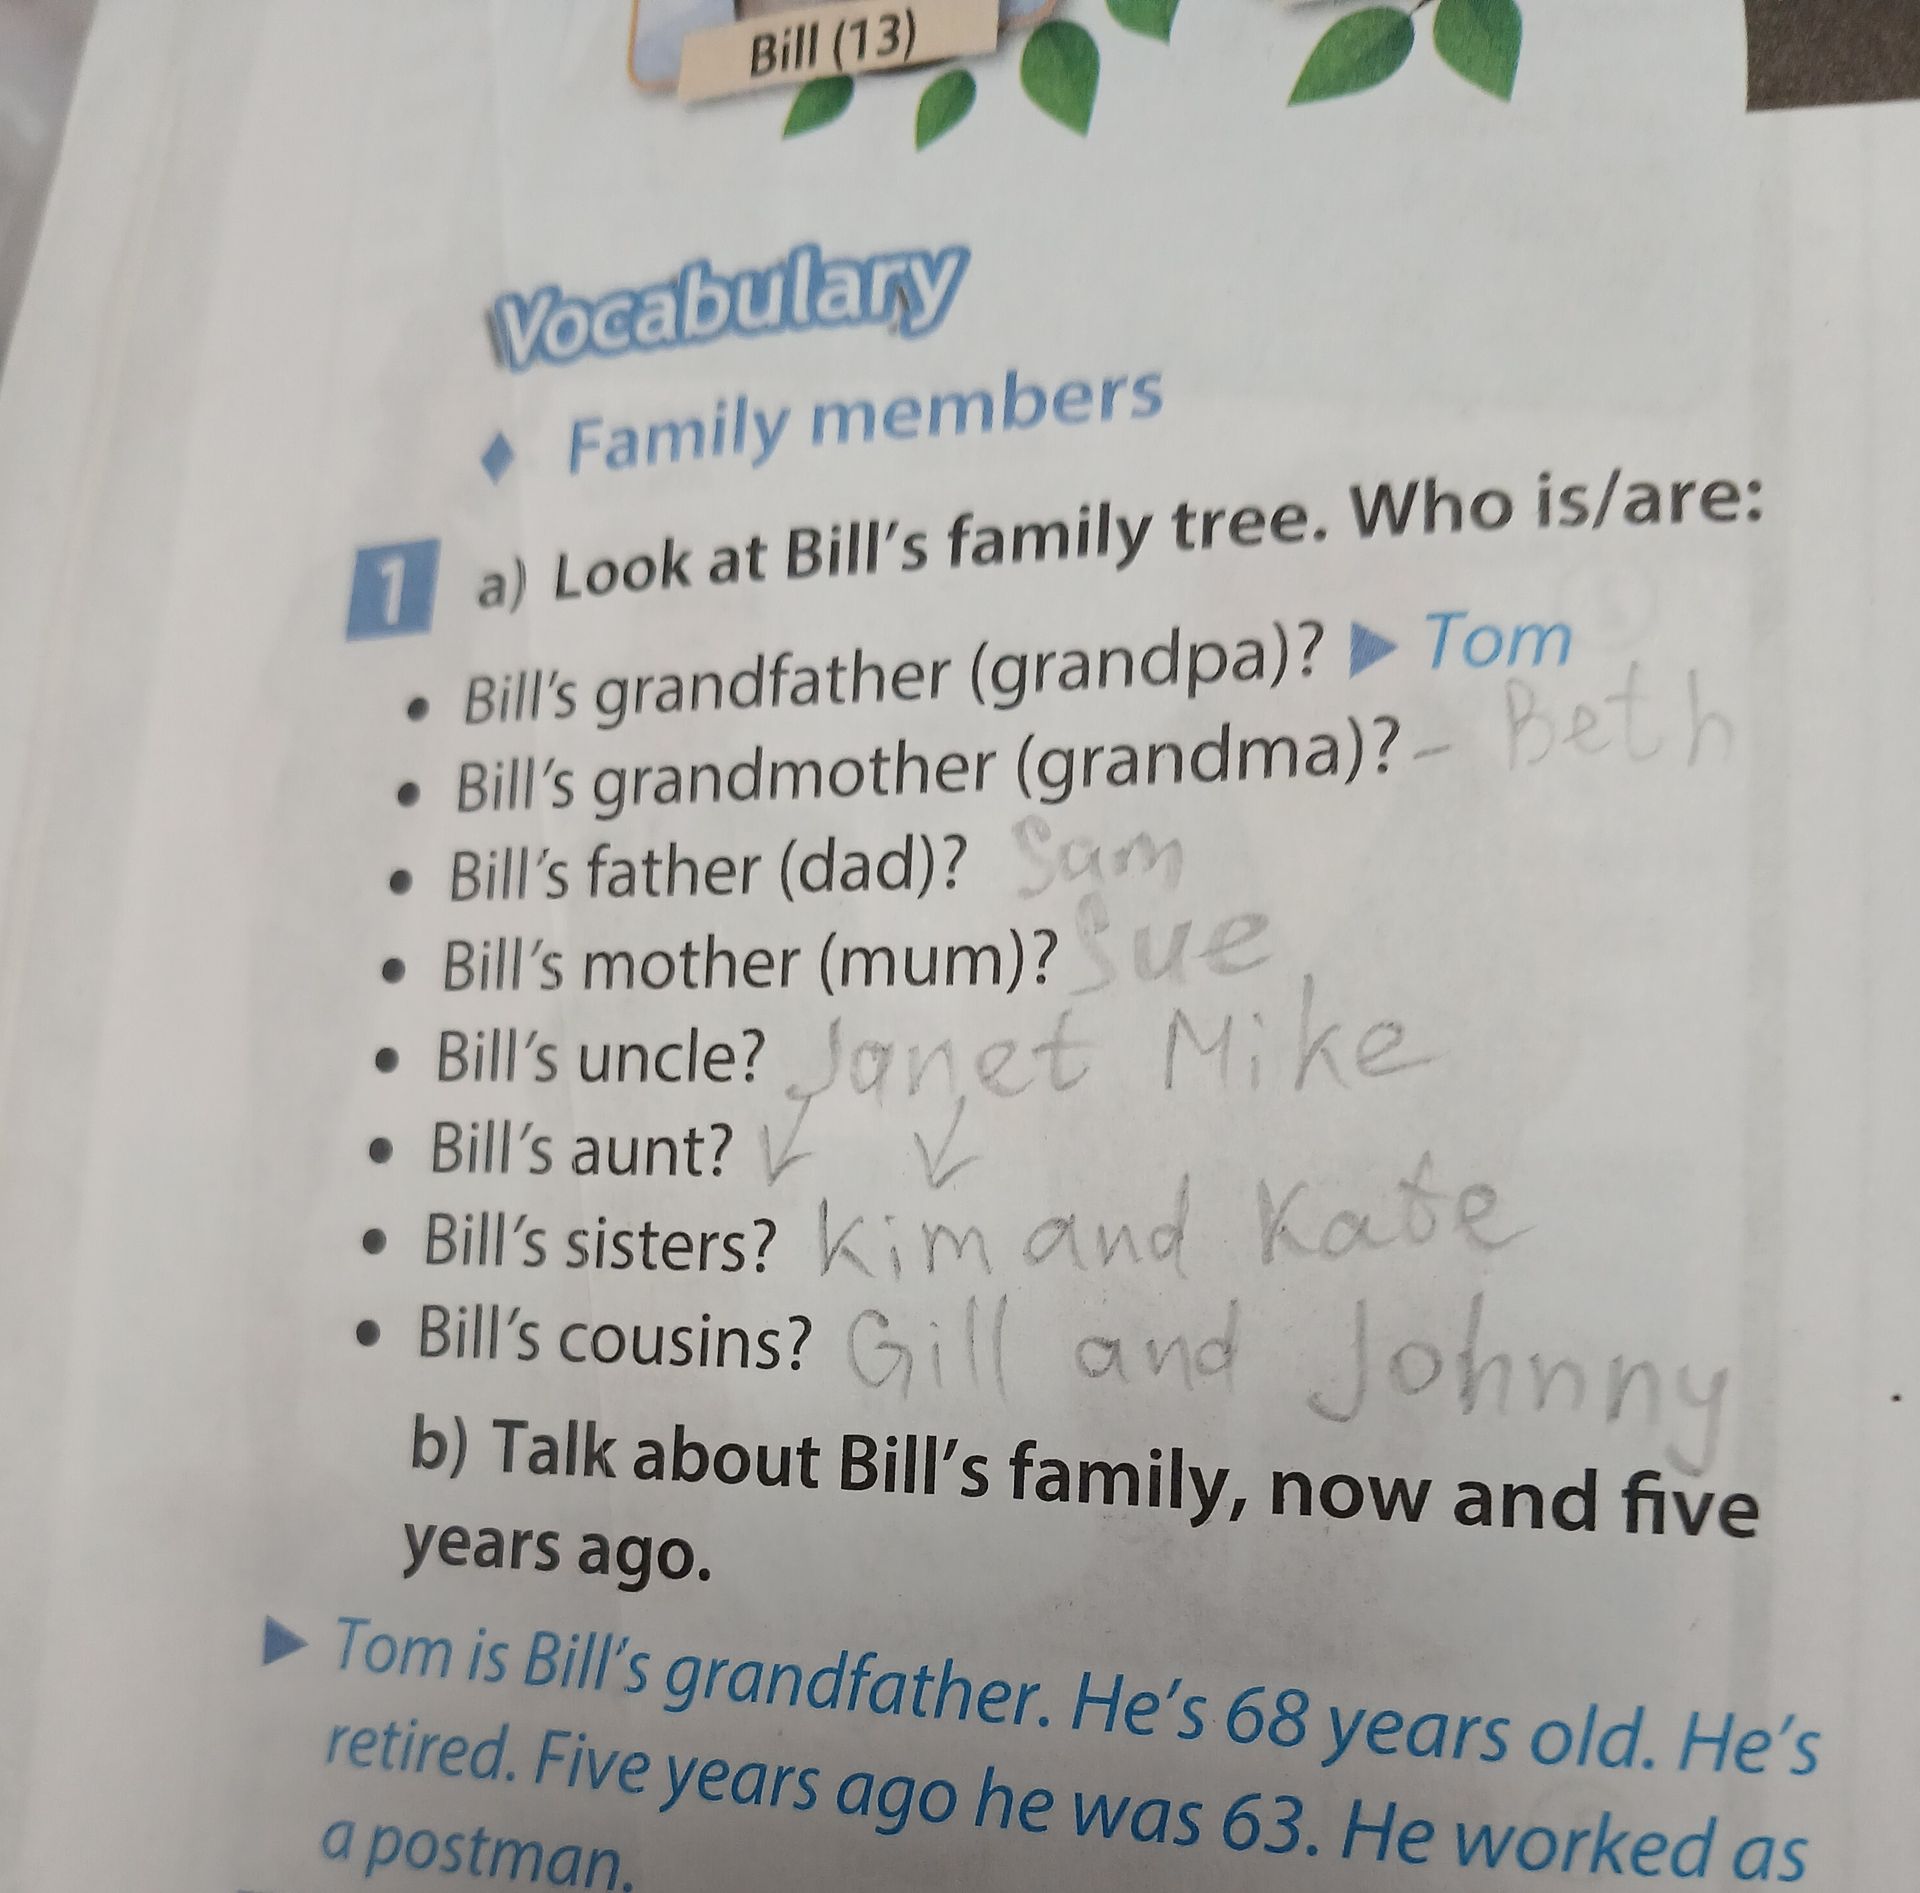 Bill (13)
Vocabulary
♦ Family members
1 a) Look at Bill's family tree. Who is/are:
• Bill's grandfather (grandpa)? ▶ Tom
• Bill's grandmother (grandma)? – Beth
• Bill's father (dad)? Sam
• Bill's mother (mum)? Sue
• Bill's uncle? Janet Mike
• Bill's aunt?
• Bill's sisters? Kim and Kate
• Bill's cousins? Gill and Johnny
b) Talk about Bill's family, now and five
years ago.
▶ Tom is Bill's grandfather. He's 68 years old. He's
retired. Five years ago he was 63. He worked as
a postman.